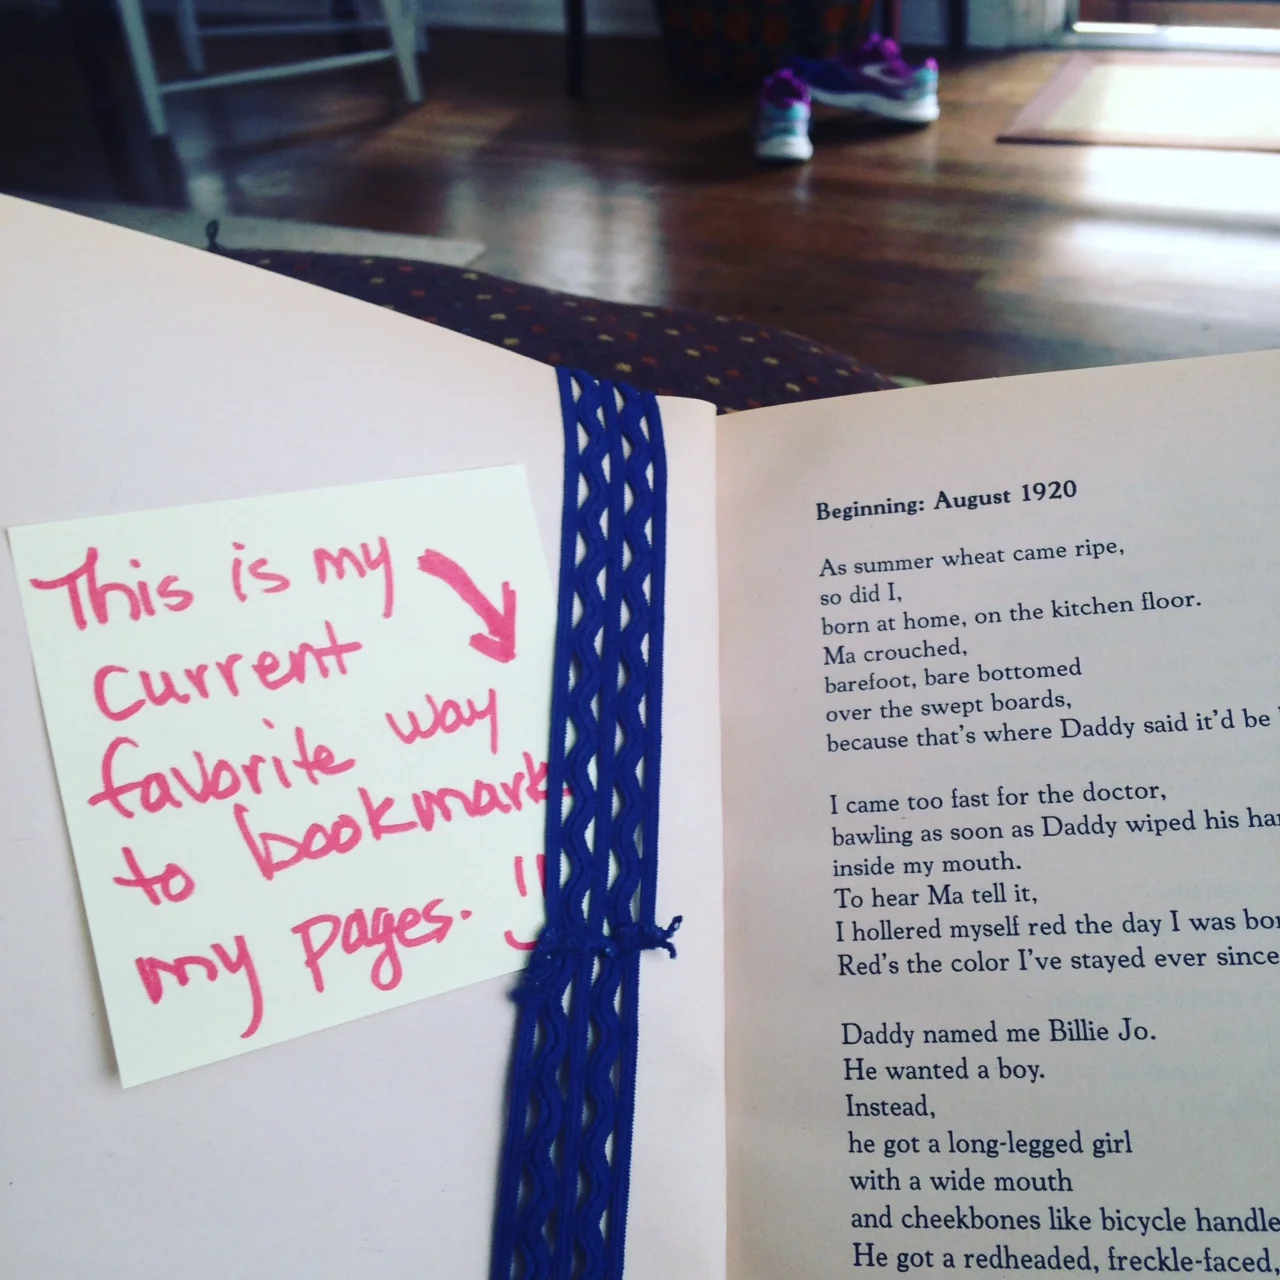 This is my
current
favorite way
to bookmark
my pages.
Beginning: August 1920
As summer wheat came ripe,
so did I,
born at home, on the kitchen floor.
Ma crouched,
barefoot, bare bottomed
over the swept boards,
because that's where Daddy said it'd be
I came too fast for the doctor,
bawling as soon as Daddy wiped his
inside my mouth.
To hear Ma tell it,
I hollered myself red the day I was
Red's the color I've stayed ever since
Daddy named me Billie Jo.
He wanted a boy.
Instead,
he got a long-legged girl
with a wide mouth
and cheekbones like bicycle
He got a redheaded, freckle-faced,